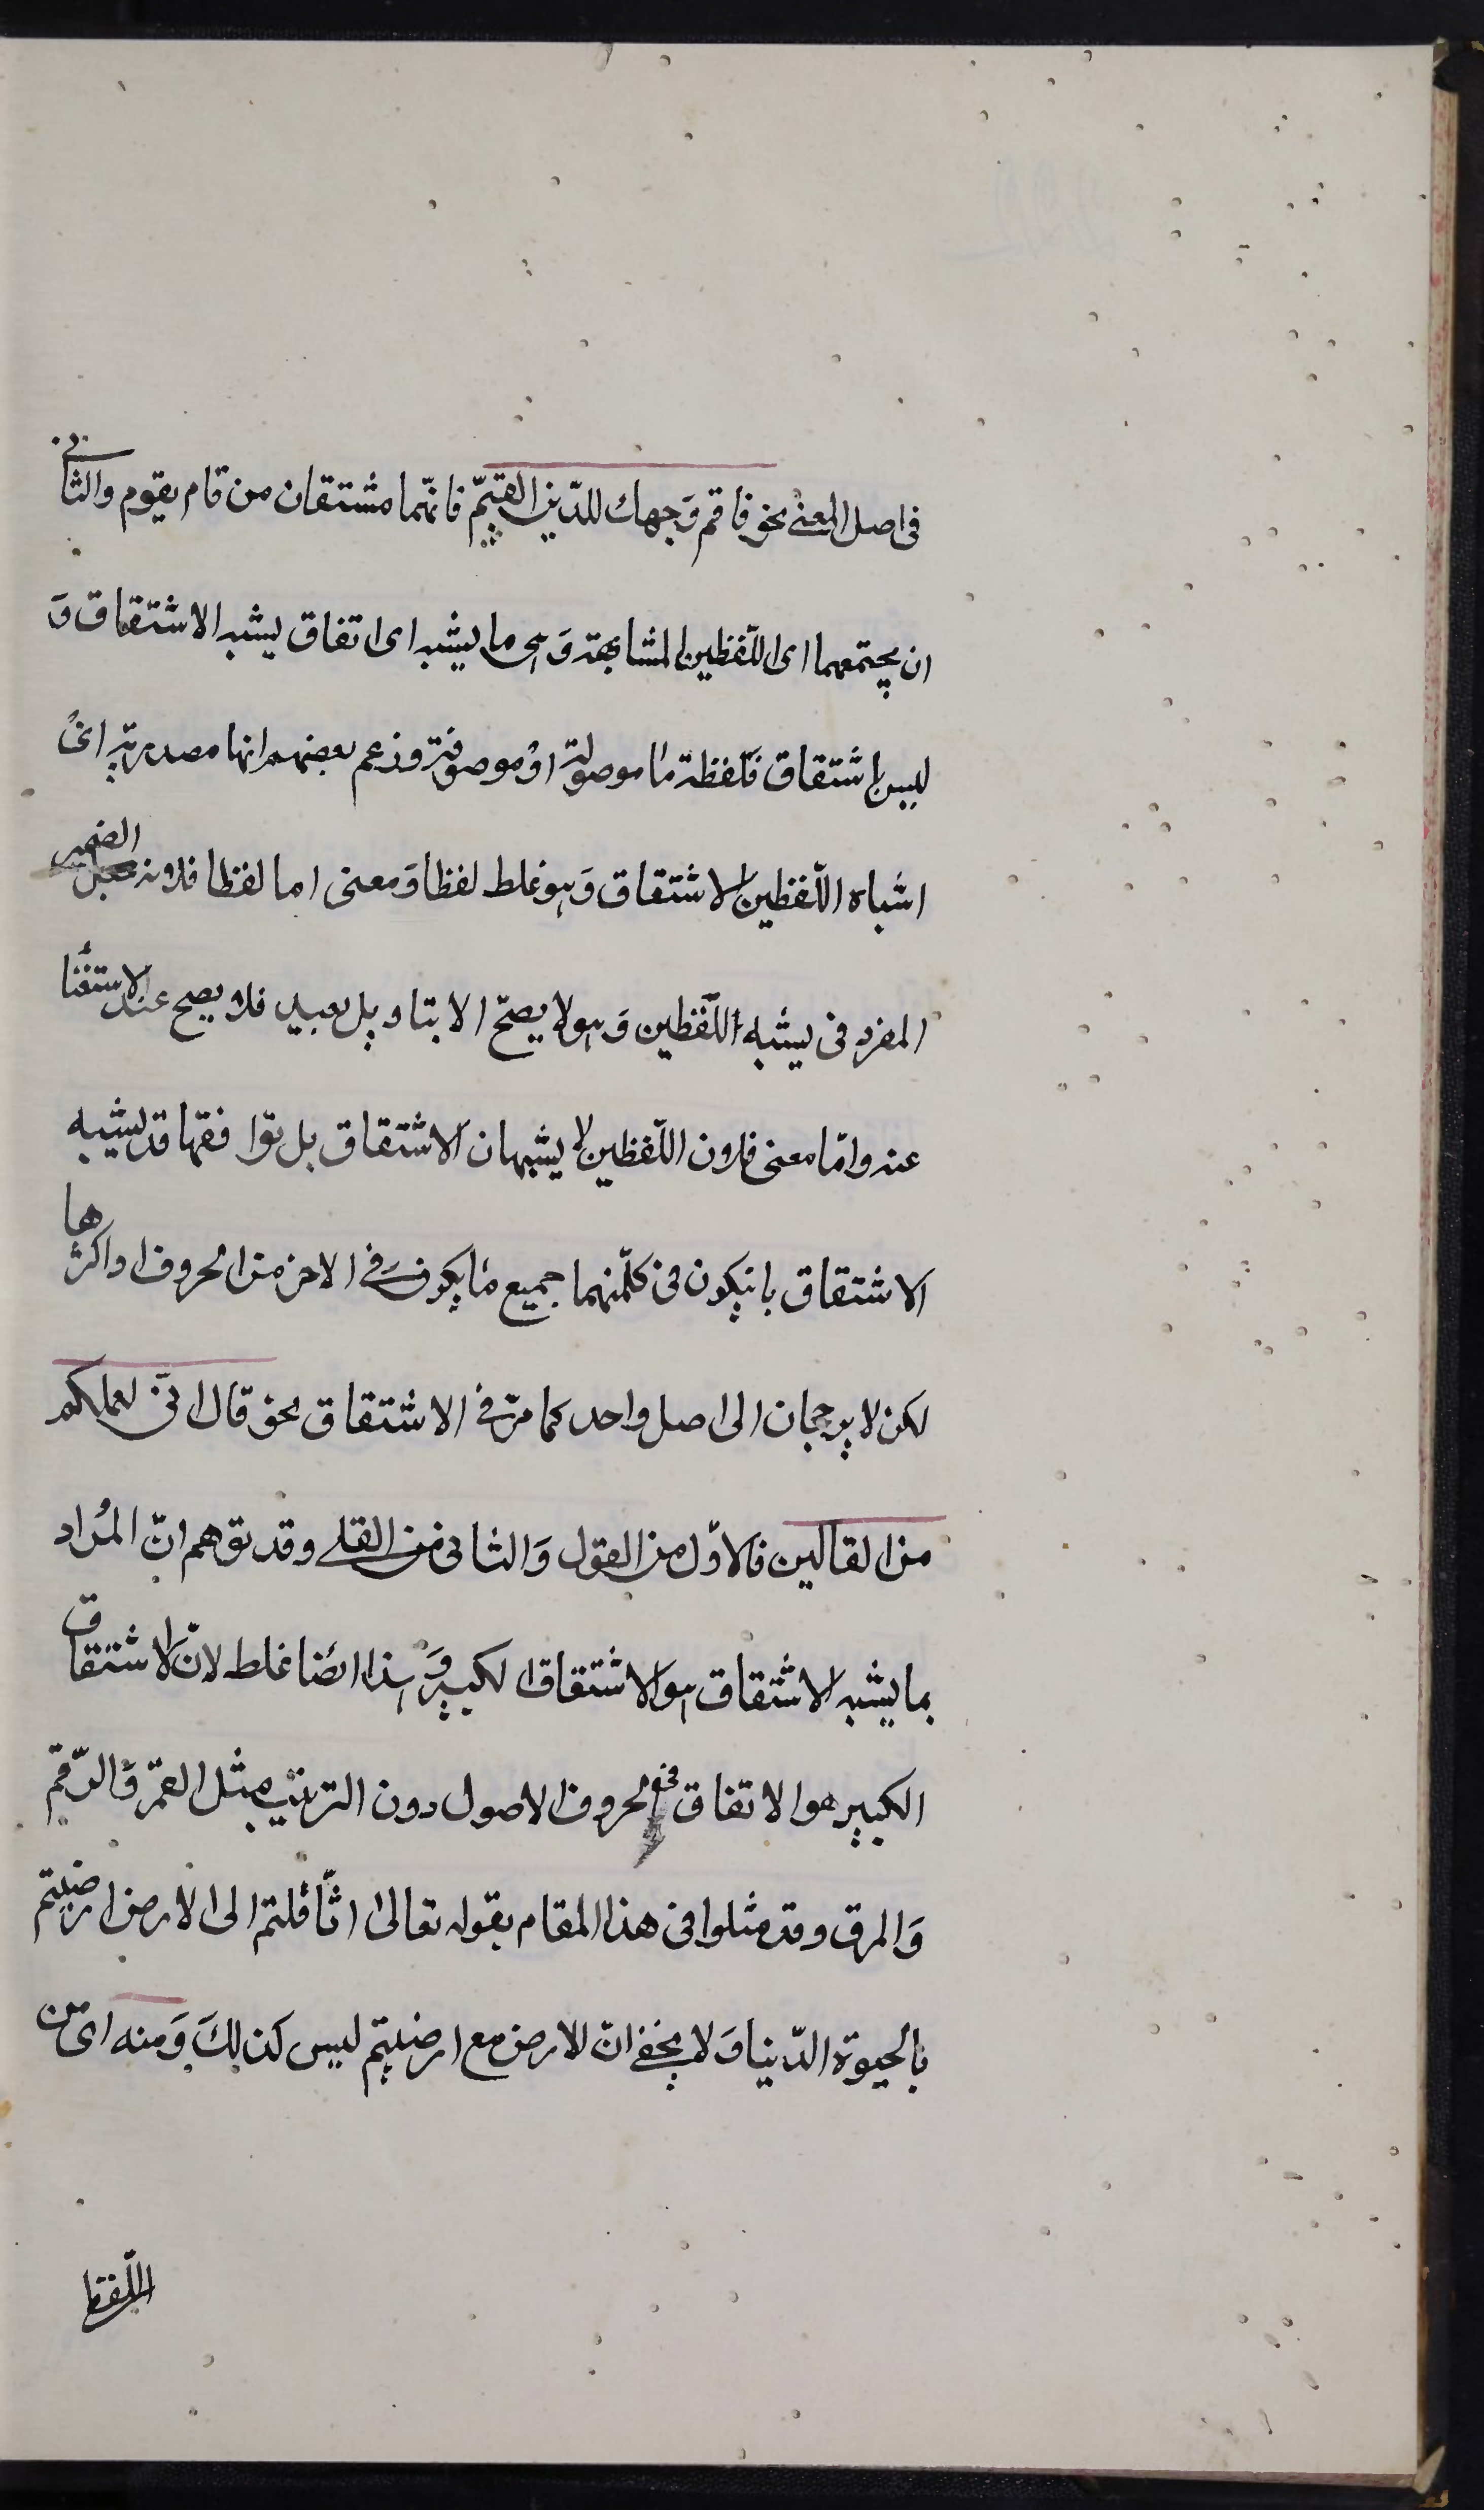 فى اصل المعنى نحو فاقم وَجهك للدّين القيّم فانّهما مشتقان من قام يقوم والثانى
ان يجتمعهما اى اللّفظين المشابهة وَهى ما يشبه اى اتفاق يشبه الاشتقاق وَ
ليس باشتقاق فلفظة ما موصولة اوْ موصوفة وزعم بعضهم انها مصدرية اىْ
اشباه اللّفظين الاشتقاق وَهو غلط لفظا وَمعنى اما لفظا فلانه جعل الضمير
المفرد فى يشبه اللّفظين وَهو لا يصحّ الا بتاويل بعيد فلا يصح عند الاستغنا
عنه وامّا معنى فلان اللّفظين لا يشبهان الاشتقاق بل توافقها قد يشبه
الاشتقاق بانيكون فى كلّ منهما جميع ما يكون فى الاخر من الحروف او اكثرها
لكن لا يرجعان الى اصل واحد كما مرّ فى الاشتقاق نحو قال انّى لعملكم
من القالين فالاوّل من القول وَالثانى من القلى وقد توهم انّ المُراد
بما يشبه الاشتقاق هو الاشتقاق الكبير وَهذا ايضا غلط لانّ الاشتقاق
الكبير هو الاتفاق فى الحروف الاصول دون الترتيب مثل القمر وَالرّقم
وَالمرق وقد مثلوا فى هذا المقام بقوله تعالى اثّاقلتم الى الارض ارضيتم
بالحيوة الدّنيا وَلا يخفى انّ الارض مع ارضيتم ليس كذلكَ وَمنه اى من
اللّفظ